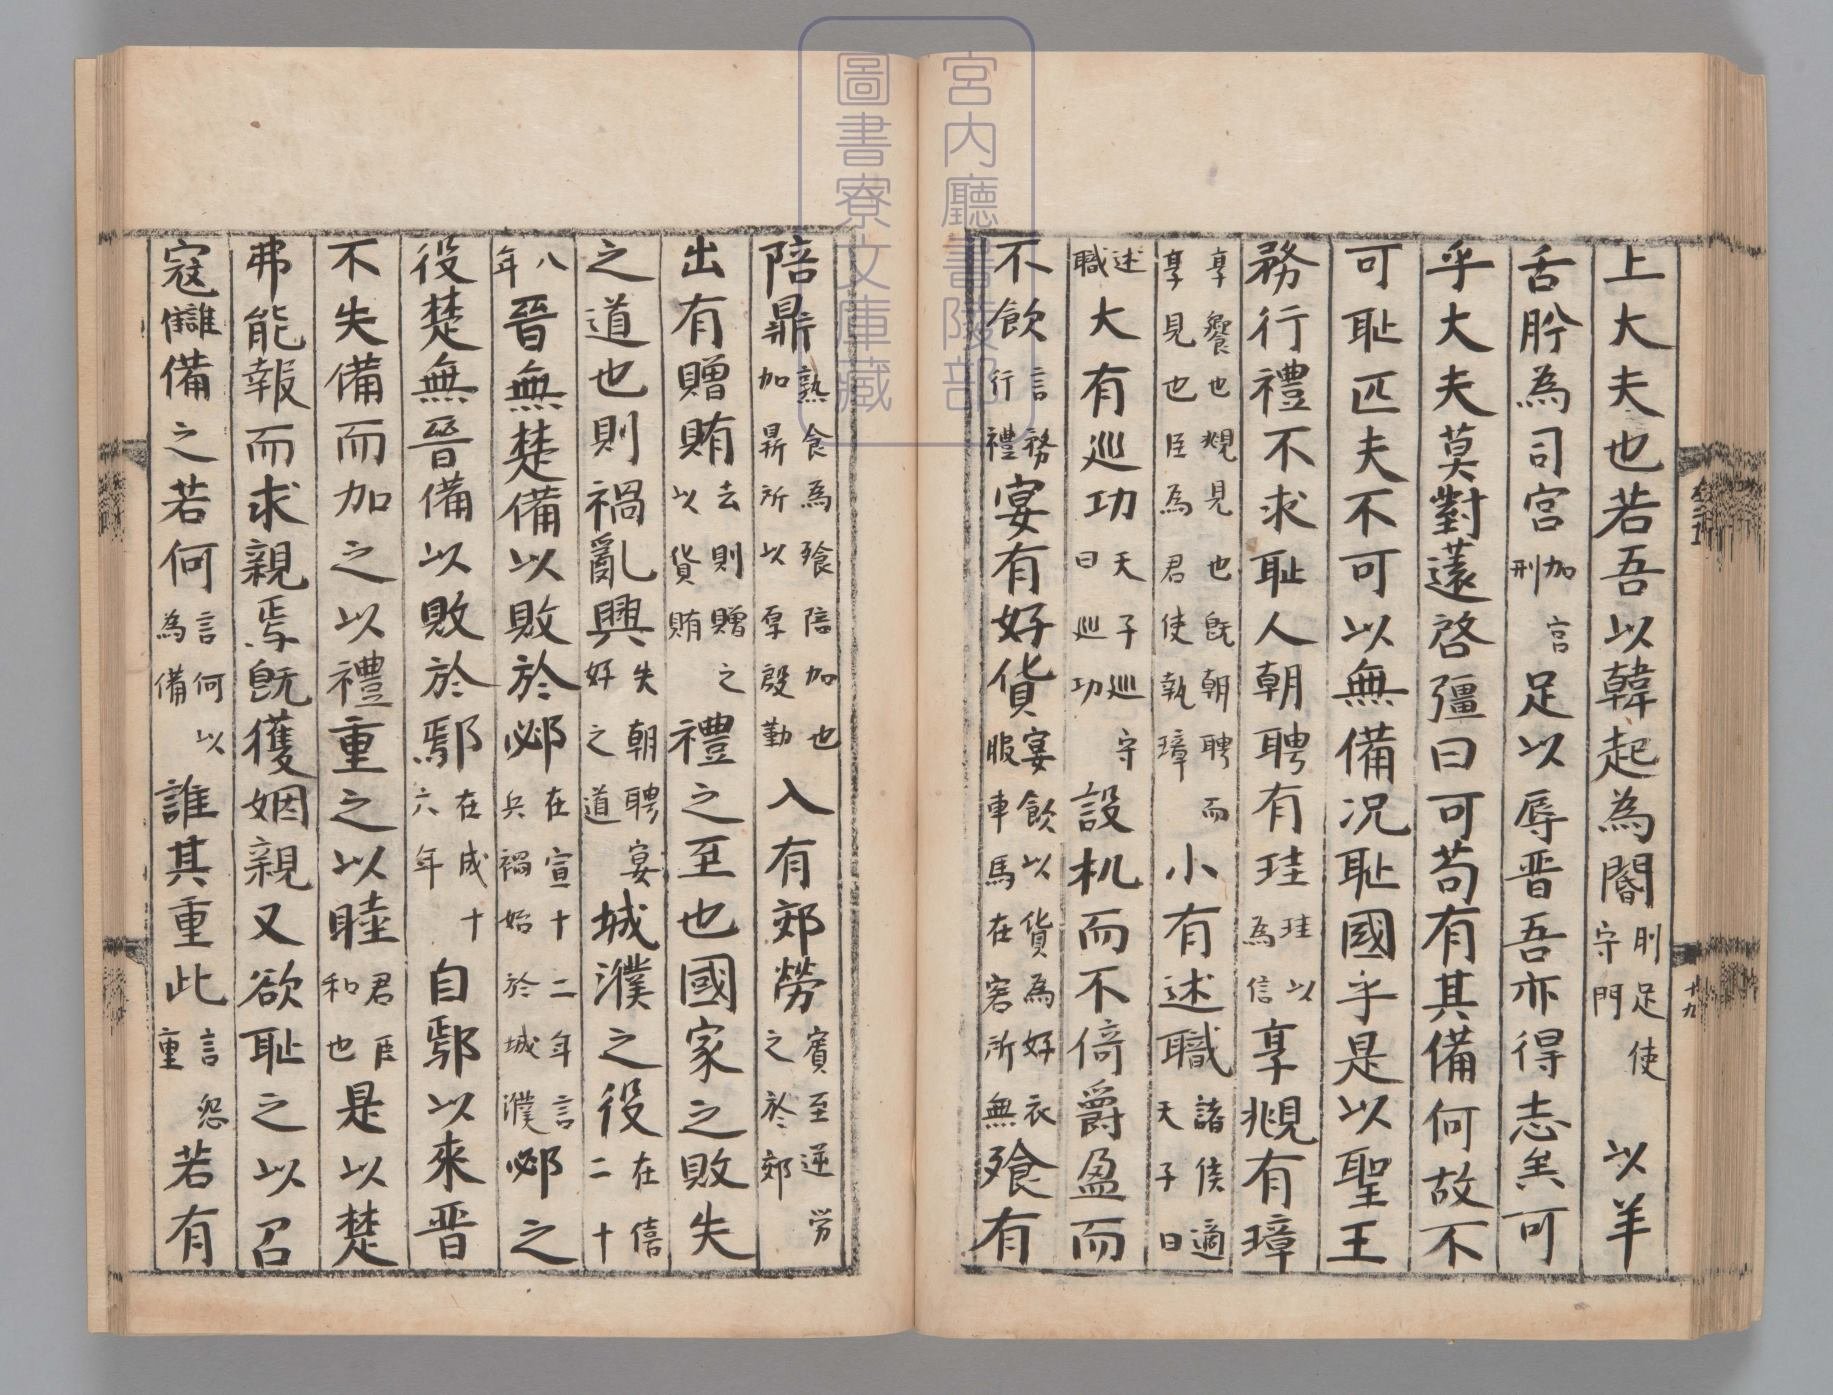 宮内廳書陵部
圖書寮文庫藏
上大夫也若吾以韓起為閽刖足使守門以羊
舌肸為司宮加宮刑足以辱晉吾亦得志矣可
乎大夫莫對薳啓彊曰可苟有其備何故不
可恥匹夫不可以無備况恥國乎是以聖王
務行禮不求恥人朝聘有珪珪以為信享覜有璋
享饗也覜見也既朝聘而享見也臣為君使執璋小有述職諸侯適天子曰
述職大有巡功天子巡守曰巡功設机而不倚爵盈而
不飲言務行禮宴有好貨宴飲以貨為好衣服車馬在客所無飱有
陪鼎熟食為飱陪加也加鼎所以厚殷勤入有郊勞賓至逆労之於郊
出有贈賄去則贈之以貨賄禮之至也國家之敗失
之道也則禍亂興失朝聘宴好之道城濮之役在僖二十
八年晉無楚備以敗於邲在宣十二年言兵禍始於城濮邲之
役楚無晉備以敗於鄢在成十六年自鄢以来晉
不失備而加之以禮重之以睦君臣和也是以楚
弗能報而求親焉既獲姻親又欲恥之以召
寇讎備之若何言何以為備誰其重此言怨重若有
十九